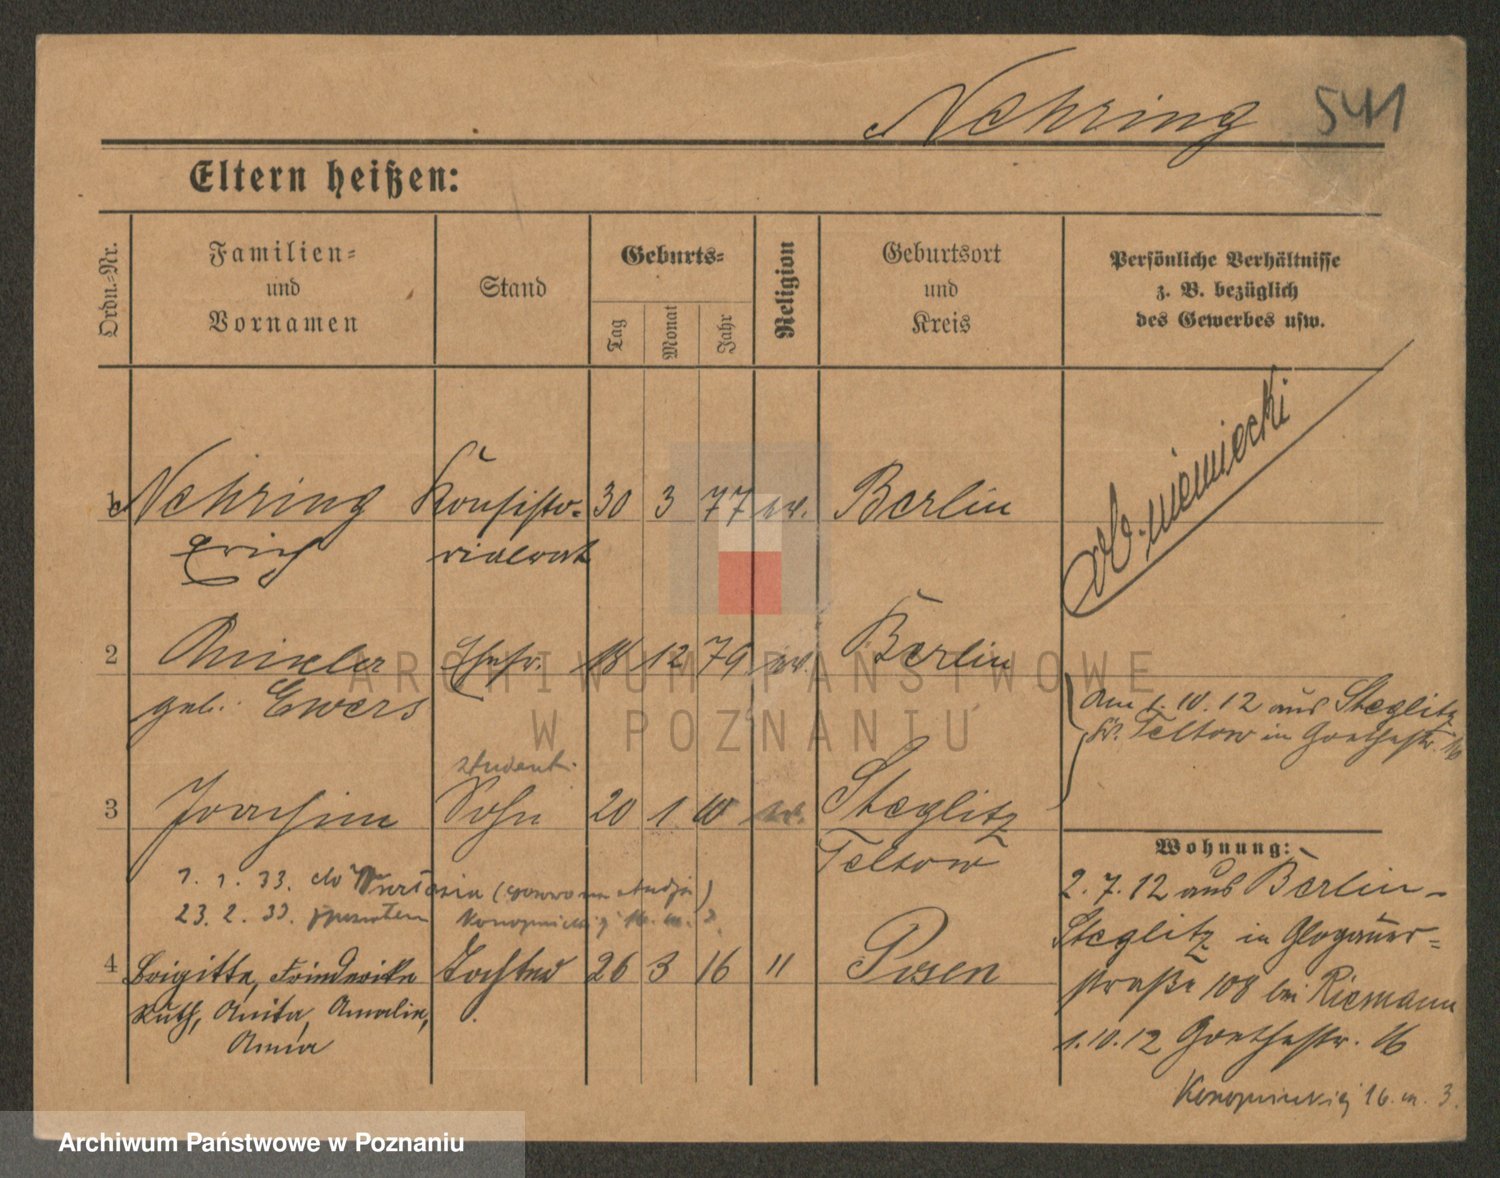 Nehring 541
Eltern heißen:
Ordn.-Nr.
Familien-
und
Vornamen
Stand
Geburts-
Tag
Monat
Jahr
Religion
Geburtsort
und
Kreis
Persönliche Verhältnisse
z. B. bezüglich
des Gewerbes usw.
ob. niemiecki
1 Nehring Konsisto- 30 3 77 ev. Berlin
Erich rialrat
2 Ehefr. 18 12 79 ev. Berlin
geb. Ewers
Am 1.10.12 aus Steglitz
Kr. Teltow in Goethestr. 16
student
3 Joachim Sohn 20 1 10 ev. Steglitz
Teltow
1. 1. 33. do
23. 2. 33. Konopnickiej 16. m. 3.
4 Brigitte, Friederike Tochter 26 3 16 " Posen
Ruth, Anita, Amalie,
Anna
Wohnung:
2.7.12 aus Berlin-
Steglitz in Glogauer-
straße 108 bei Riemann
1.10.12 Goethestr. 16
Konopnickiej 16. m. 3.
ARCHIWUM PAŃSTWOWE
W POZNANIU
Archiwum Państwowe w Poznaniu